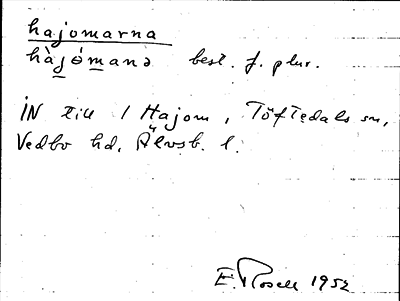 hajomarna
hàjómanə best. f. plur.
IN till 1 Hajom, Töftedals sn,
Vedbo hd, Älvsb. l.
E. Rosell 1952